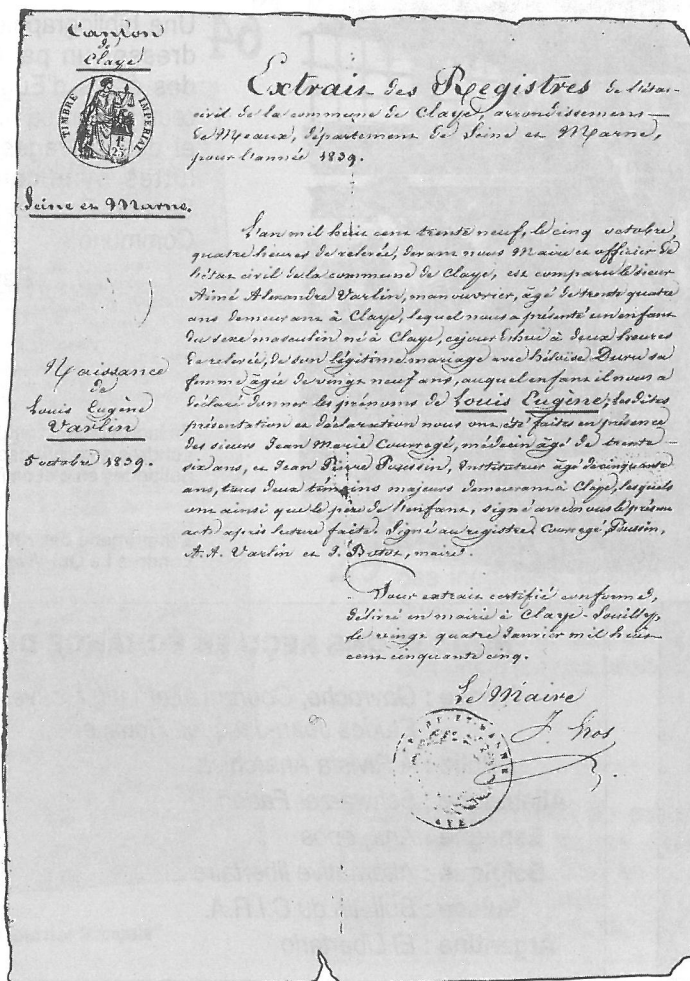 Canton
de
Claye
TIMBRE IMPERIAL
1f
25
Seine et Marne.
Naissance
de
Louis Eugène
Varlin
5 octobre 1839.
Extrait des Registres de l'état
civil de la commune de Claye, arrondissement
de Meaux, département de Seine et Marne,
pour l'année 1839.
L'an mil huit cent trente neuf, le cinq octobre,
quatre heures de relevée, devant nous Maire et officier de
l'état civil de la commune de Claye, est comparu le sieur
Aimé Alexandre Varlin, manouvrier, âgé de trente quatre
ans demeurant à Claye, lequel nous a présenté un enfant
du sexe masculin né à Claye, cejourd'hui à deux heures
de relevée, de son légitime mariage avec héloïse Duru sa
femme âgée de vingt neuf ans, auquel enfant il nous a
déclaré donner les prénoms de Louis Eugène; lesdites
présentation et déclaration nous ont été faites en présence
des sieurs Jean Marie Courregé, médecin âgé de trente
six ans, et Jean Pierre Poussin, Instituteur âgé de cinquante
ans, tous deux témoins majeurs demeurant à Claye, lesquels
ont ainsi que le père de l'enfant, signé avec nous le présent
acte après lecture faite. Signé au registre, Courregé, Poussin,
A. A. Varlin et J. Botot, maire.
Pour extrait certifié conforme,
délivré en mairie à Claye-Souilly,
le vingt quatre Janvier mil huit
cent cinquante cinq.
Le Maire
J. Gros